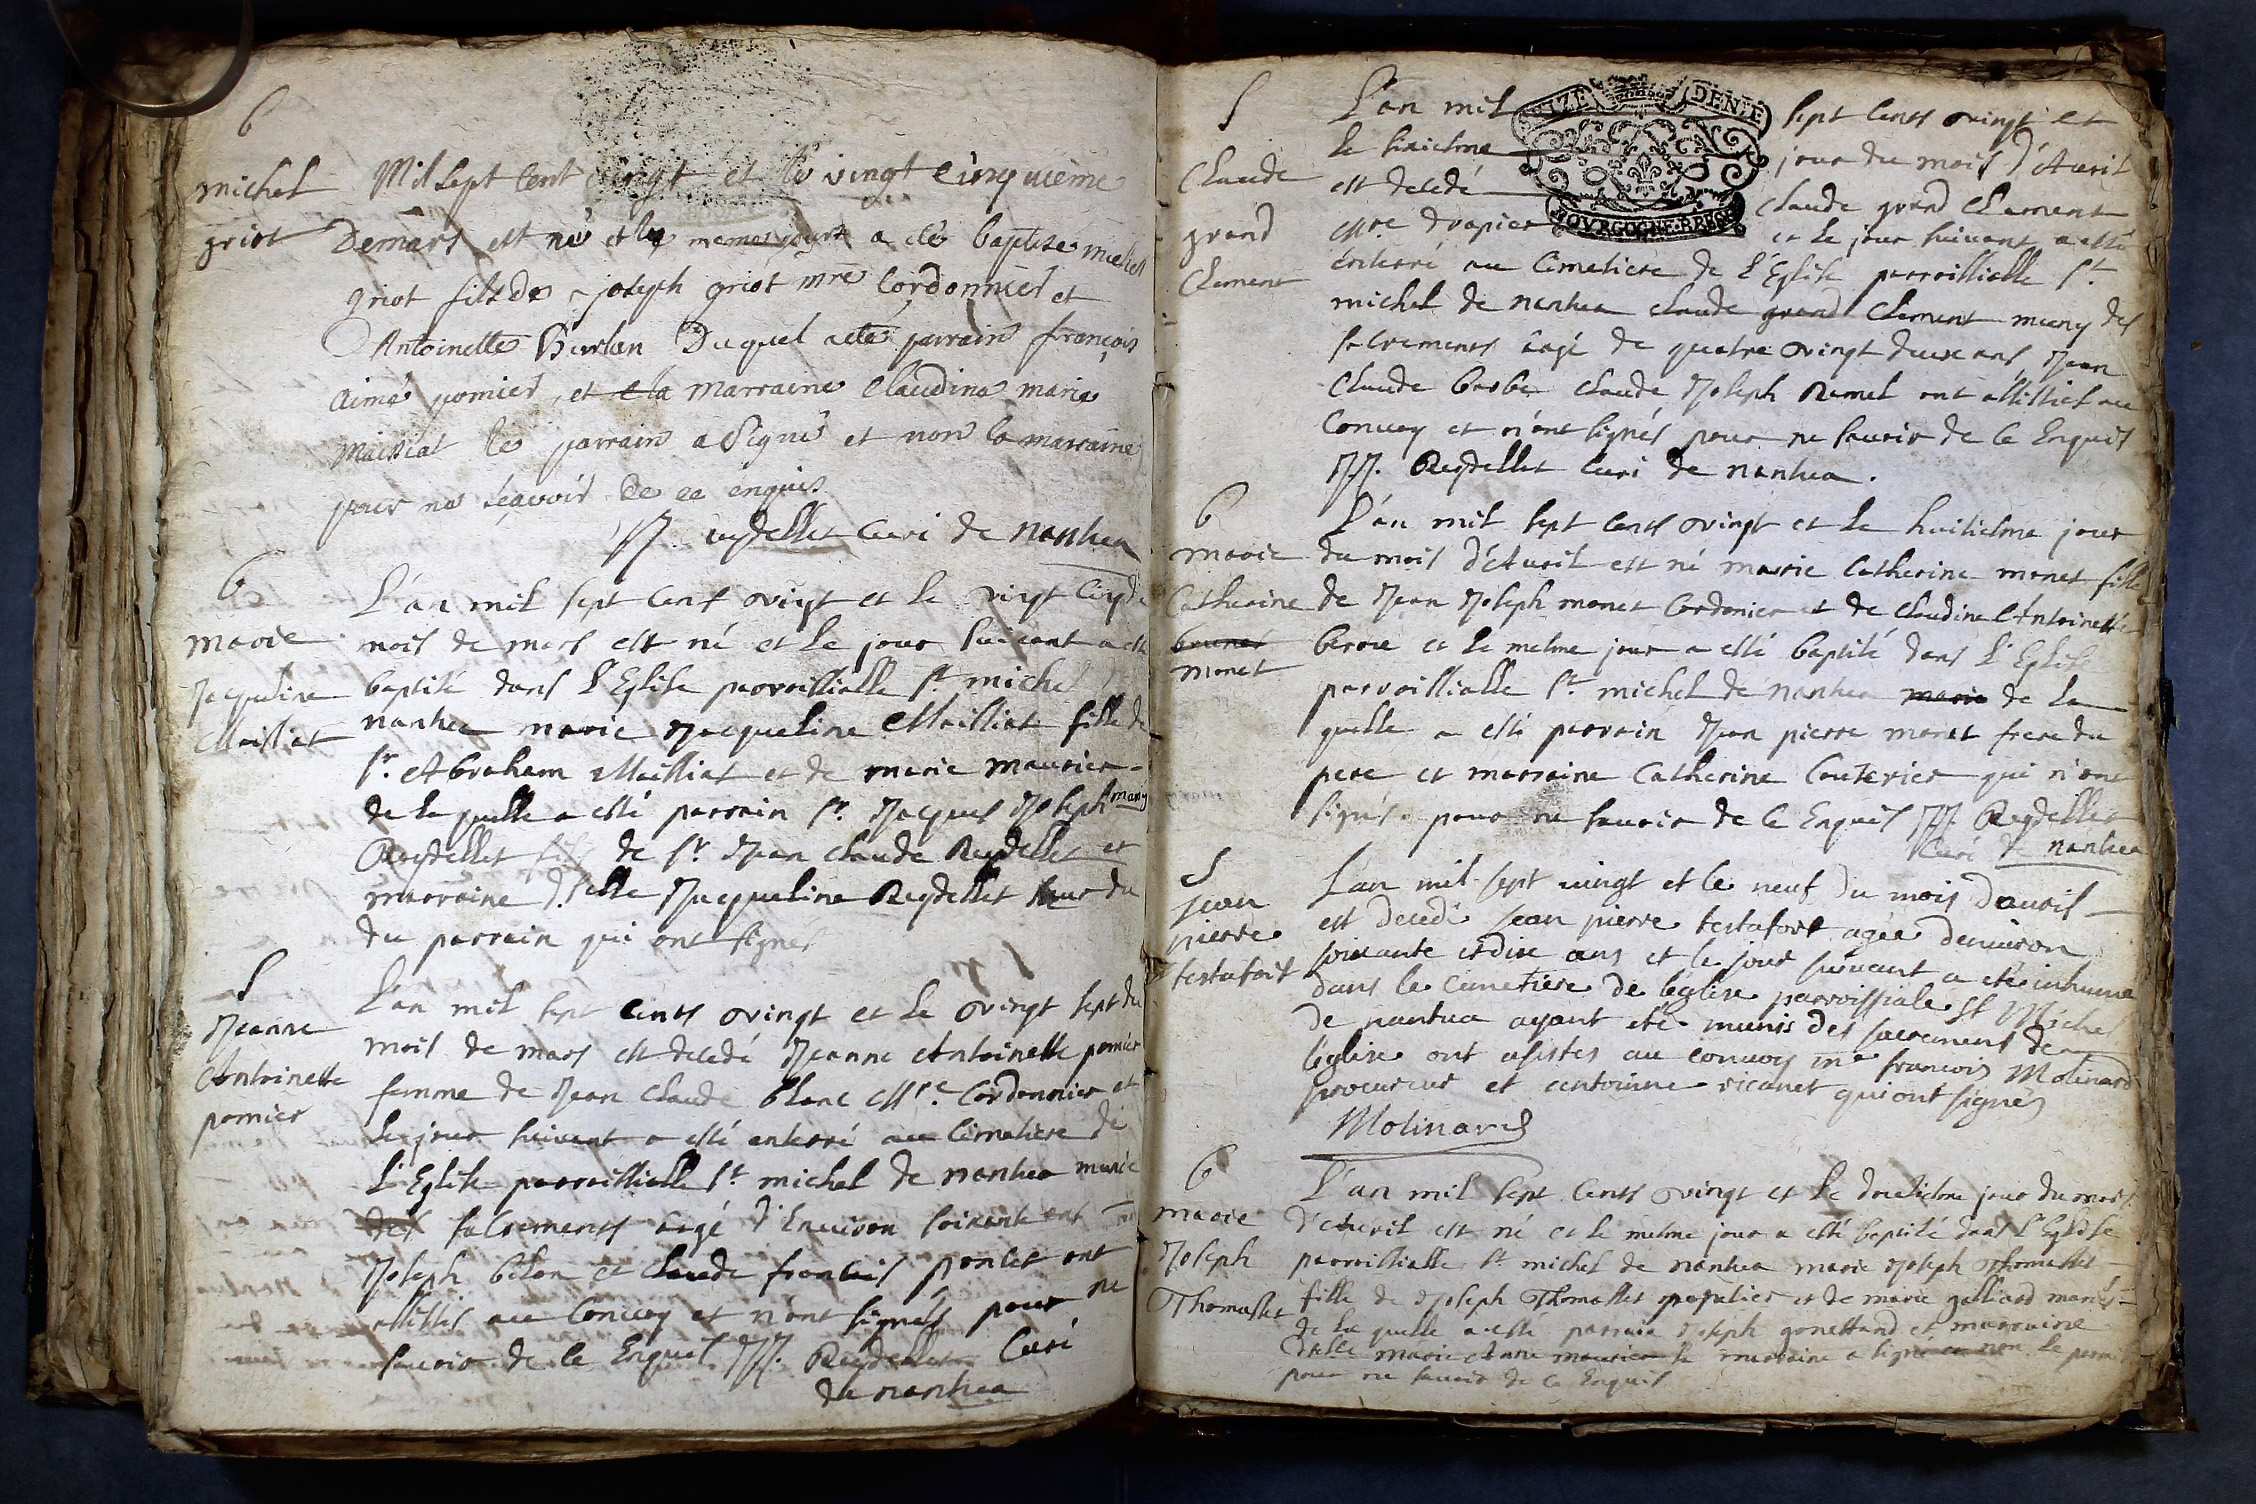 6
michel
griot
Mil Sept Cent vingt et le vingt cinquieme
Demars est né et les memes jours a eté baptise michel
griot fils de joseph griot mre Cordonnier et
Antoinette Burlan Duquel a eté parrain françois
aimé pomier, et la marraine Claudine marie
maissiat le parrain a Signé et non la marraine
pour ne sçavoir de ce enquis
JJ. reydellet Curé de nantua
6
marie
Jacqueline
Mailliat
L'an mil sept cents vingt et le vingt cinq du
mois de mars est né et le jour suivant a esté
baptisé dans l'Eglise parroissialle st michel
nantua marie Jacqueline Mailliat fille de
sr. Abraham Mailliat et de marie maurier
de la quelle a esté parrain sr. Jacques Joseph marie
Reydellet fils de sr Jean Claude Reydellet et
marraine d.elle Jacqueline Reydellet sœur du
du parrain qui ont signes
S
Jeanne
Antoinette
pomier
L'an mil sept cents vingt et le vingt sept du
mois de mars est decedé Jeanne Antoinette pomier
femme de Jean Claude blanc Mre. Cordonnier et
le jour suivant a esté enterré au Cimetiere de
l'Eglise parroissialle st michel de nantua munie
des sacrements aagé d'Environ soixante ans
Joseph et Claude francois poncet ont
assistés au Convoy et n'ont signés pour ne
scavoir de ce Enquis JJ. Reydellet Curé
de nantua
S
Claude
grand
Clement
SEIZE DENIE
BOVRGOGNE BRESSE
L'an mil sept cents vingt et
le huictieme jour du mois d'Avril
est decedé Claude grand Clement
Mre drapier et le jour suivant a esté
enterré au Cimetiere de l'Eglise parroissialle st.
michel de nantua claude grand Clement muny des
sacrements aagé de quatre vingt deux ans Jean
Claude barbe claude Joseph Ramel ont assistiés au
Convoy et n'ont signés pour ne scavoir de ce Enquis
JJ. Reydellet Curé de nantua.
6
marie
Catherine
brunet
monet
L'an mil sept cents vingt et le huitiesme jour
du mois d'Avril est né marie Catherine monet fille
de Jean Joseph monet Cordonier et de Claudine Antoinette
et le mesme jour a esté baptisé dans l'Eglise
parroissialle st. michel de nantua marie de la
quelle a esté parrain Jean pierre monet frere du
pere et marraine Catherine Couterier qui n'ont
signés pour ne scavoir de ce Enquis JJ. Reydellet
Curé de nantua
S
jean
pierre
testafort
Lan mil sept vingt et le neuf du mois davril
est decedé jean pierre testafort agée denviron
soixante et dix ans et le jour suivant a eté inhumé
dans le cimetiere de leglise parroissiale St Michel
de nantua ayant eté munis des sacrements de
léglise ont assistes au convoy me francois Molinard
procureur et antoinne ricanet qui ont signés
Molinard
6
marie
Joseph
Thomasset
L'an mil sept cents vingt et le douziesme jour du mois
d'Avril est né et le mesme jour a esté baptisé dans l'Eglise
parroissialle st michel de nantua marie Joseph Thomasset
fille de Joseph Thomasset et de marie galliard mariés
de la quelle a esté parrain Joseph gonettand et marraine
dlle marie Anne maurier la marraine a signé et non le parrain
pour ne scavoir de ce Enquis